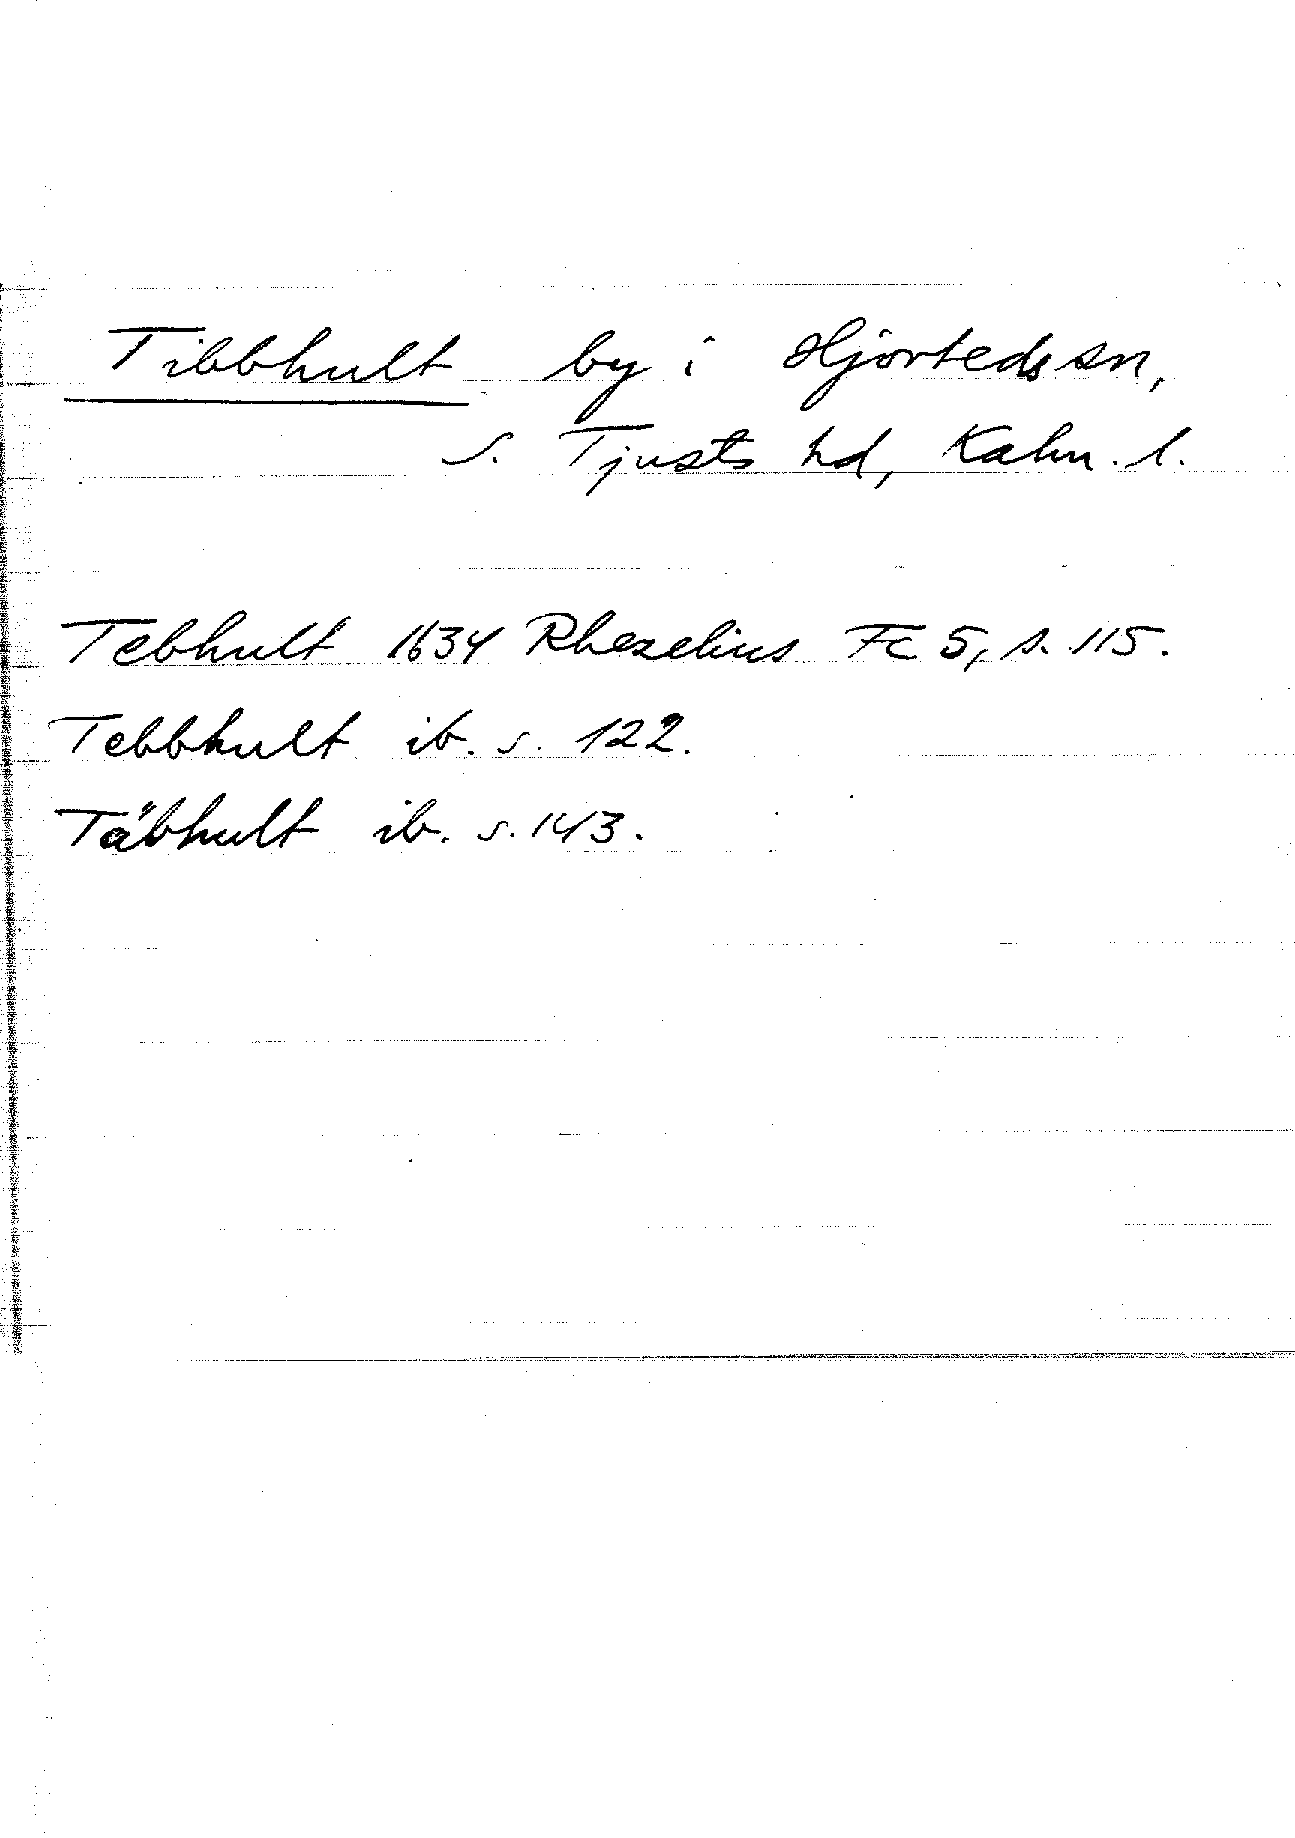 Tibbhult by i Hjorteds sn,
s. Tjusts hd, Kalm. l.
Tebhult 1634 Rhezelius Fc 5, s. 115.
Tebbhult ib. s. 122.
Täbhult ib. s. 143.